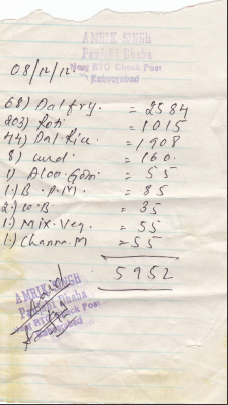 AMRIK SINGH
Punjabi Dhaba
Near RTO Check Post
08/12/12
68) Dalfry. = 2584
203) Roti = 1015
44) Dal Rice = 1908
8) curd. = 160.
1) Aloo. Gobi = 55
1.) B. P. M. = 85
2.) W. B = 35
1.) Mix. Veg. = 55
1.) Channa. M = 55
5952
AMRIK SINGH
Punjabi Dhaba
Near RTO Check Post